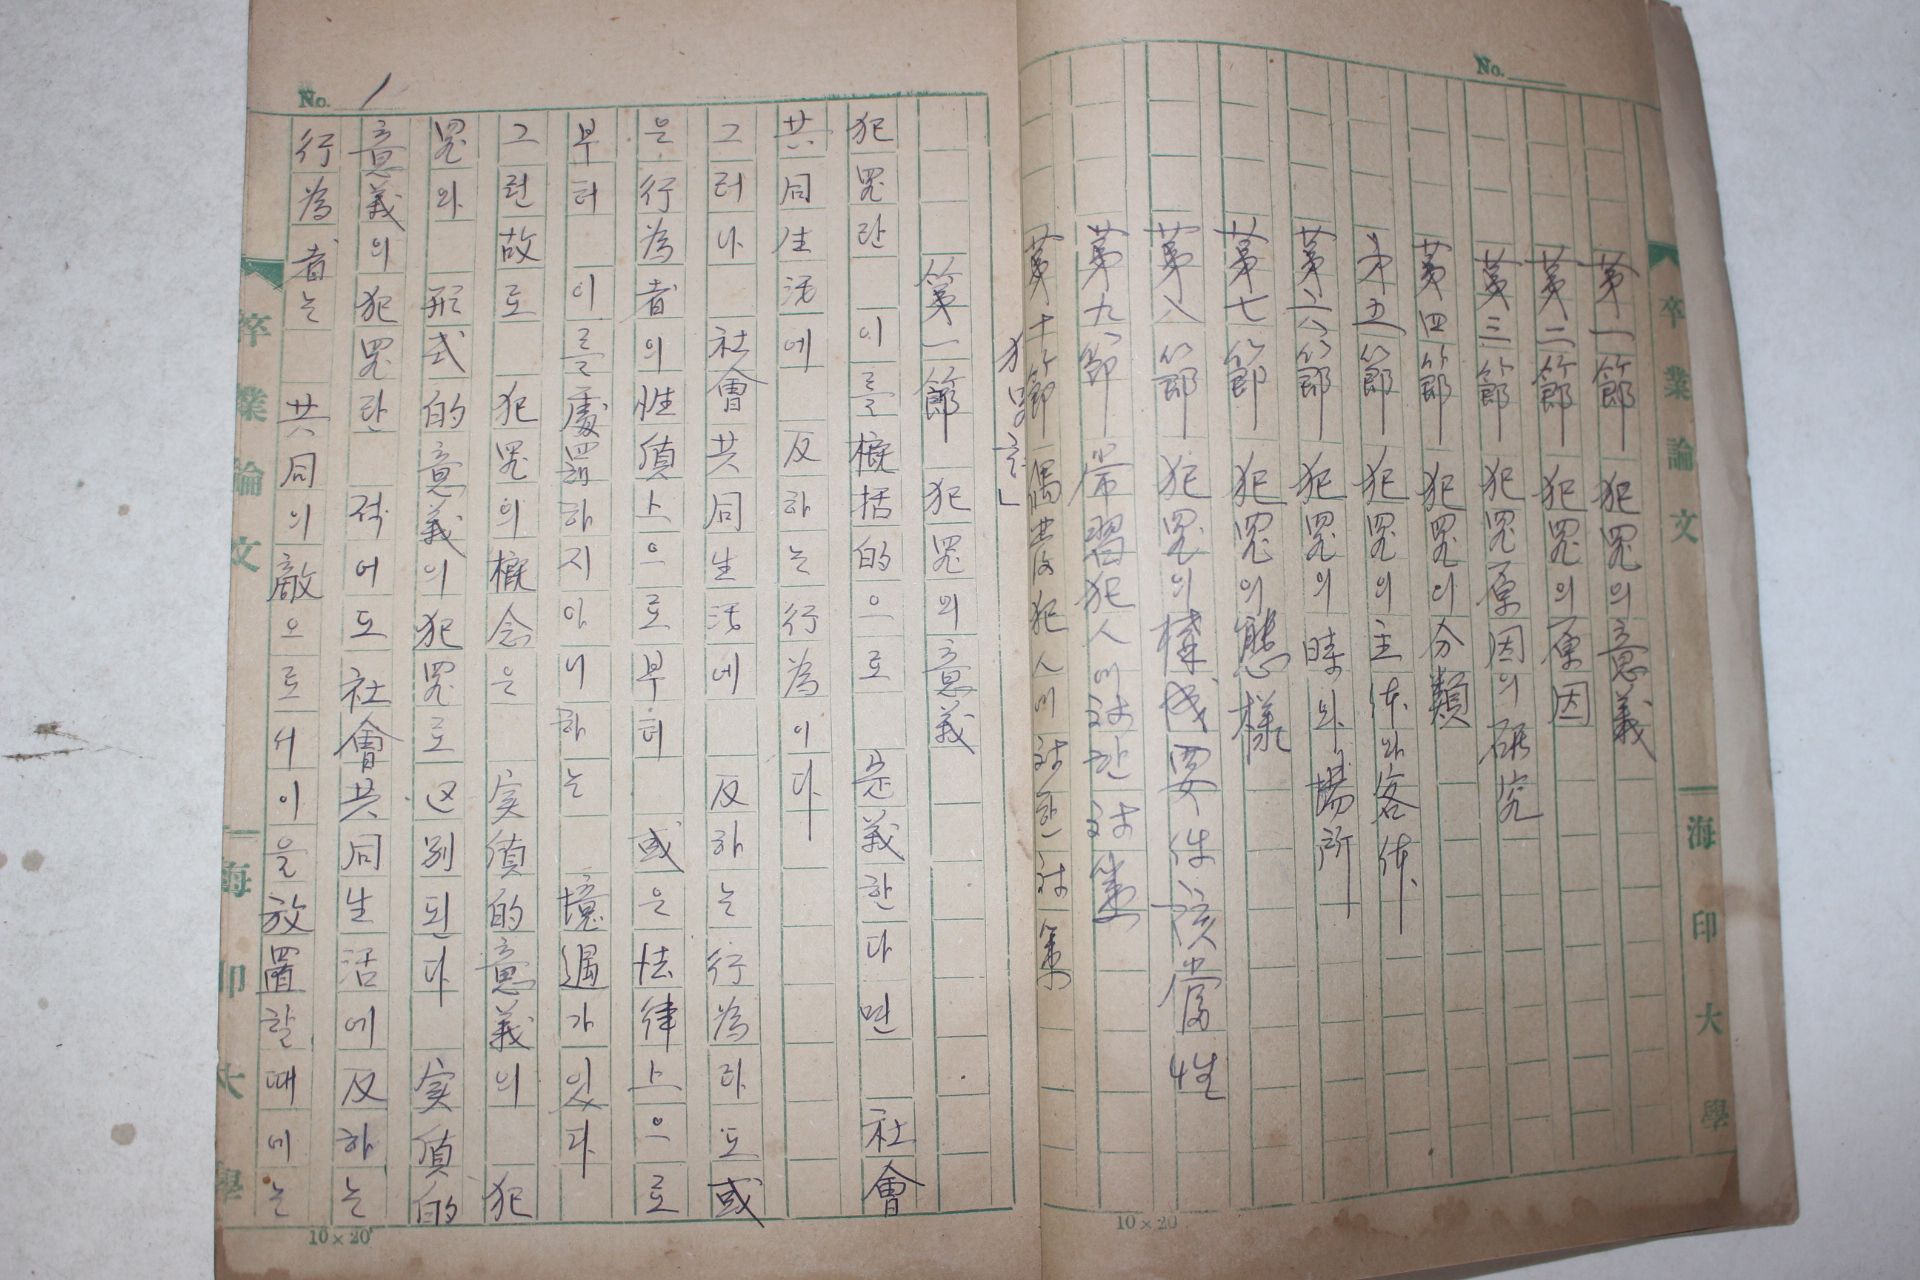 No.
卒業論文
海印大學
第一節 犯罪의 意義
第二節 犯罪의 原因
第三節 犯罪原因의 硏究
第四節 犯罪의 分類
第五節 犯罪의 主体와 客体
第六節 犯罪의 時와 場所
第七節 犯罪의 態樣
第八節 犯罪의 構成要件該當性
第九節 常習犯人에 対한 対策
第十節 偶発犯人에 対한 対策
10×20
No. 1
犯罪論」
第一節 犯罪의 意義
犯罪란 이를 槪括的으로 定義한다면 社會
共同生活에 反하는 行為이다
그러나 社會共同生活에 反하는 行為라도 或
은 行為者의 性質上으로부터 或은 法律上으로
부터 이를 處罰하지 아니하는 境遇가 있다
그런故로 犯罪의 槪念은 実質的意義의 犯
罪와 形式的意義의 犯罪로 区別된다 実質的
意義의 犯罪란 적어도 社會共同生活에 反하는
行為者는 共同의 敵으로서 이을 放置할때에는
卒業論文
海印大學
10×20